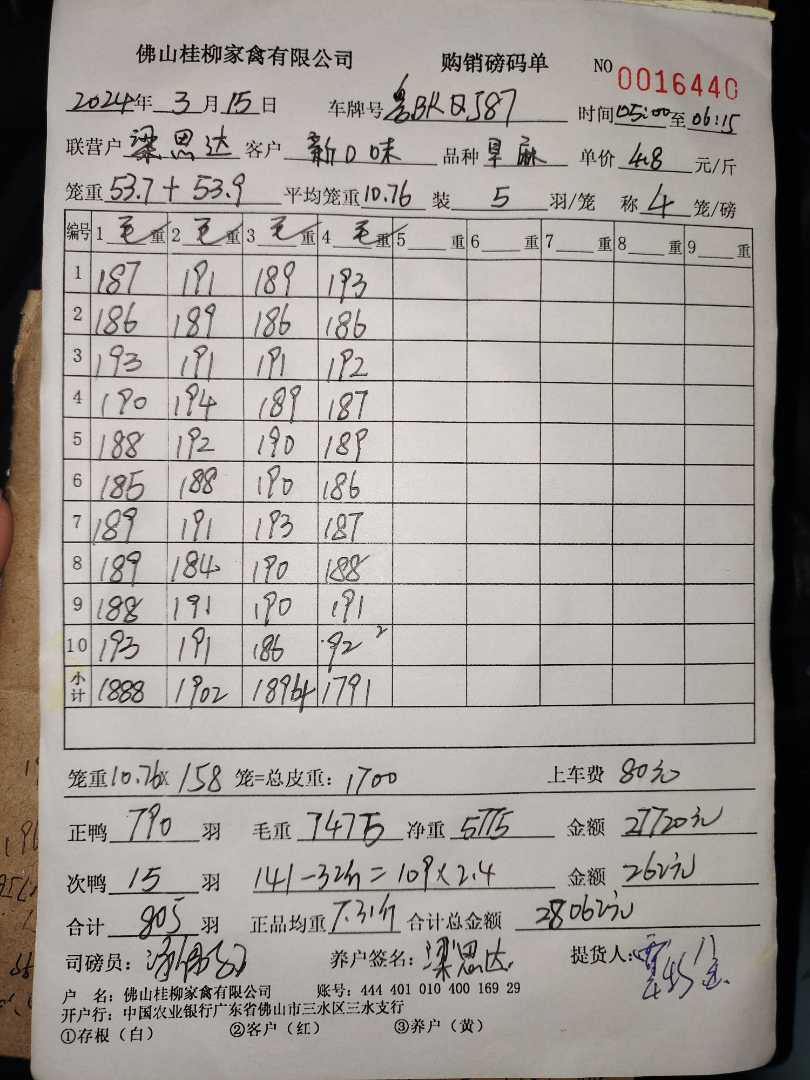 佛山桂柳家禽有限公司 购销磅码单 NO 0016440
2024年 3月 15日 车牌号 粤BKQJ87 时间05:00至06:15
联营户 梁思达 客户 新口味 品种 旱麻 单价 4.8 元/斤
笼重53.7+53.9 平均笼重10.76 装 5 羽/笼 称 4 笼/磅
编号 1毛重 2毛重 3毛重 4毛重 5 重 6 重 7 重 8 重 9 重
1 187 191 189 193
2 186 189 186 186
3 193 191 191 192
4 190 194 189 187
5 188 192 190 189
6 185 188 190 186
7 189 191 193 187
8 189 184 190 188
9 188 191 190 191
10 193 191 186 92 2
小计 1888 1902 1894 1791
笼重10.76X 158 笼=总皮重:1700 上车费 80元
正鸭 790 羽 毛重 7475 净重 5775 金额 27720元
次鸭 15 羽 141-32斤=109×2.4 金额 262元
合计 805 羽 正品均重7.31斤 合计总金额 28062元
司磅员: 养户签名:梁思达 提货人:
户 名:佛山桂柳家禽有限公司 账号:444 401 010 400 169 29
开户行:中国农业银行广东省佛山市三水区三水支行
①存根(白) ②客户(红) ③养户(黄)